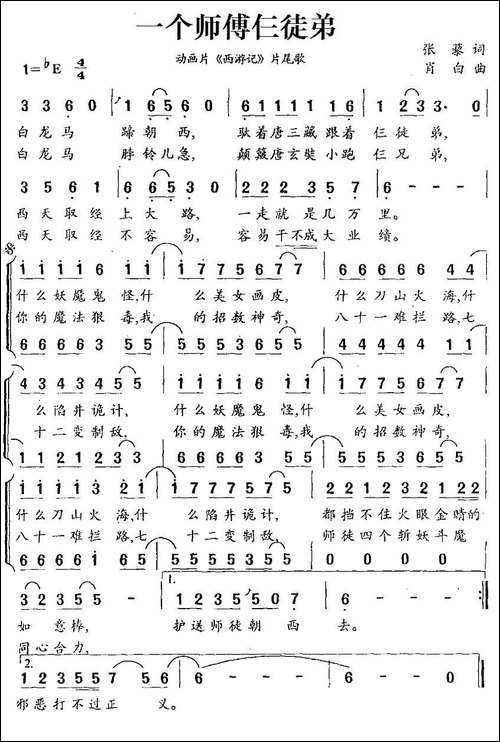 一个师傅仨徒弟
动画片《西游记》片尾歌
张藜 词
肖白 曲
1=♭E 4/4
3 3 6 0 1 6 5 6 0 6 1 1 1 1 1 1 2 3 3 · 0
白龙马 蹄朝西, 驮着唐三藏跟着仨徒弟,
白龙马 脖铃儿急, 颠簸唐玄奘小跑仨兄弟,
3 5 6 1 6 6 5 3 0 2 2 2 3 5 7 6 - - -
西天取经上大路, 一走就是几万里。
西天取经不容易, 容易干不成大业绩。
1 1 1 1 6 1 1 7 7 5 6 7 7 6 6 6 6 6 4 4
什么妖魔鬼怪,什么美女画皮, 什么刀山火海,什
你的魔法狠毒,我的招数神奇, 八十一难拦路,七
6 6 6 6 3 5 5 5 3 5 3 5 5 4 4 4 4 4
4 3 4 3 4 5 5 1 1 1 1 6 1 1 7 7 5 6 7 7
么陷井诡计, 什么妖魔鬼怪,什么美女画皮,
十二变制敌, 你的魔法狠毒,我的招数神奇,
1 1 2 1 2 5 5 6 6 6 6 3 5 5 5 3 5 6 5 5
1 1 1 1 3 2 1 1 7 7 7 5 7 5 2 2 1 2 3 2 1 2 2
什么刀山火海,什么陷井诡计, 都挡不住火眼金睛的
八十一难拦路,七十二变制敌, 师徒四个斩妖斗魔
1.
3 2 3 5 5 - 1 2 3 5 5 0 7 6 - - -
如意棒, 护送师徒朝西去。
同心合力,
2.
1 2 3 5 5 7 5 6 6 - - - 6 - - 0
邪恶打不过正义。